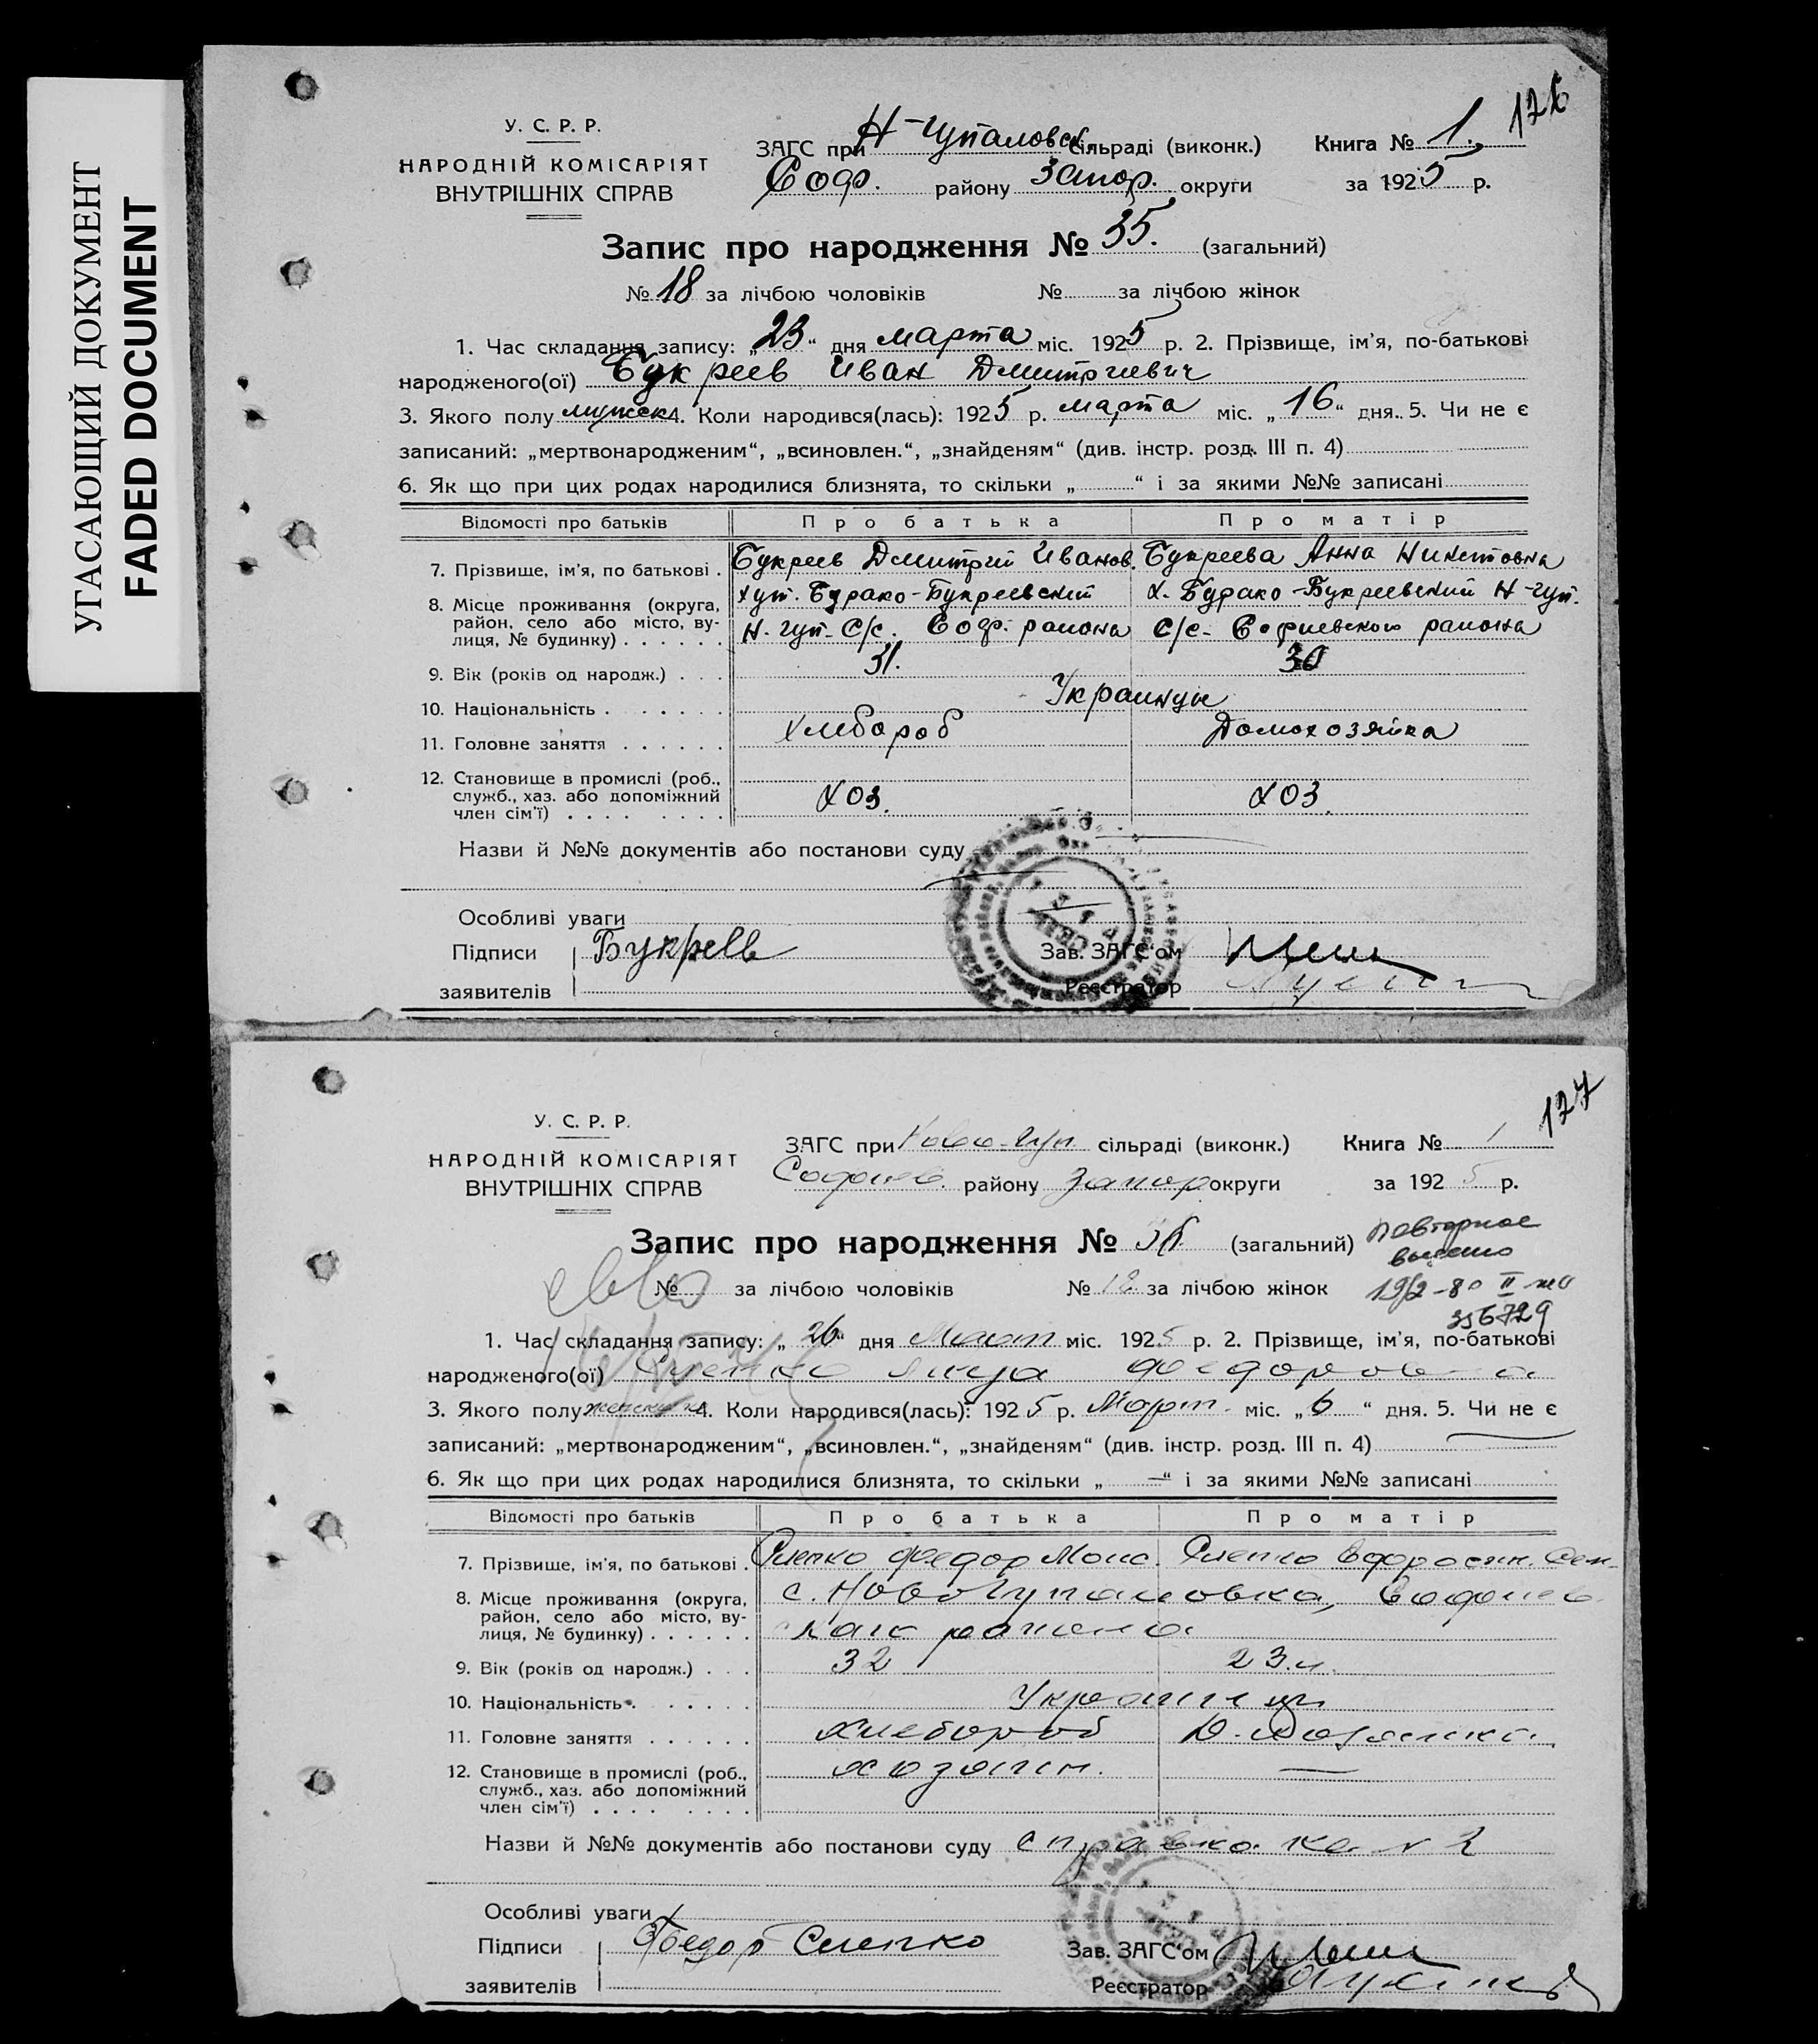 УГАСАЮЩИЙ ДОКУМЕНТ
FADED DOCUMENT
126
У. С. Р. Р.
НАРОДНІЙ КОМІСАРІЯТ
ВНУТРІШНІХ СПРАВ
ЗАГС при Н-Чупаловск. сільраді (виконк.) Книга № 1.
Соф. району Запор. округи за 1925 р.
Запис про народження № 35. (загальний)
№ 18 за лічбою чоловіків № за лічбою жінок
1. Час складання запису: „23“ дня марта міс. 1925 р. 2. Прізвище, ім'я, по-батькові
народженого(ої) Букреев Иван Дмитриевич
3. Якого полу мужск. 4. Коли народився(лась): 1925 р. марта міс. „16“ дня. 5. Чи не є
записаний: „мертвонародженим“, „всиновлен.“, „знайденям“ (див. інстр. розд. III п. 4)
6. Як що при цих родах народилися близнята, то скільки „ “ і за якими №№ записані
Відомості про батьків Про батька Про матір
7. Прізвище, ім'я, по батькові . Букреев Дмитрий Иванов. Букреева Анна Никитовна
8. Місце проживання (округа, район, село або місто, вулиця, № будинку) хут. Бурако-Букреевский х. Бурако-Букреевский Н-Чуп.
Н. Чуп. С/с. Соф. района С/с. Софиевского района
9. Вік (років од народж.) . . . 31. 30
10. Національність . Украинцы
11. Головне заняття . . . . . . Хлебороб Домохозяйка
12. Становище в промислі (роб., служб., хаз. або допоміжний член сім'ї) . . . . Хоз. Хоз.
Назви й №№ документів або постанови суду
Особливі уваги
Підписи Букреев Зав. ЗАГС'ом
заявителів Реєстратор
127
У. С. Р. Р.
НАРОДНІЙ КОМІСАРІЯТ
ВНУТРІШНІХ СПРАВ
ЗАГС при Ново-Чуп. сільраді (виконк.) Книга № 1
Софиев. району Запор округи за 1925 р.
Запис про народження № (загальний) повторное
№ за лічбою чоловіків № 18 за лічбою жінок
356729
1. Час складання запису: „26“ дня Март міс. 1925 р. 2. Прізвище, ім'я, по-батькові
народженого(ої) Федоровна
3. Якого полу женск 4. Коли народився(лась): 1925 р. Март міс. „6“ дня. 5. Чи не є
записаний: „мертвонародженим“, „всиновлен.“, „знайденям“ (див. інстр. розд. III п. 4)
6. Як що при цих родах народилися близнята, то скільки „—“ і за якими №№ записані
Відомості про батьків Про батька Про матір
7. Прізвище, ім'я, по батькові . Слепко Федор Моис. Слепко Ефросин. Сем.
8. Місце проживання (округа, район, село або місто, вулиця, № будинку) с. Ново Чупаловка, Софиев
района
9. Вік (років од народж.) . . . 32 23
10. Національність . Украинцы
11. Головне заняття . . . . . . Хлебороб Д. Хозяйка
12. Становище в промислі (роб., служб., хаз. або допоміжний член сім'ї) . . . . хозяин. —
Назви й №№ документів або постанови суду справка № 2
Особливі уваги
Підписи Федор Слепко Зав. ЗАГС'ом
заявителів Реєстратор